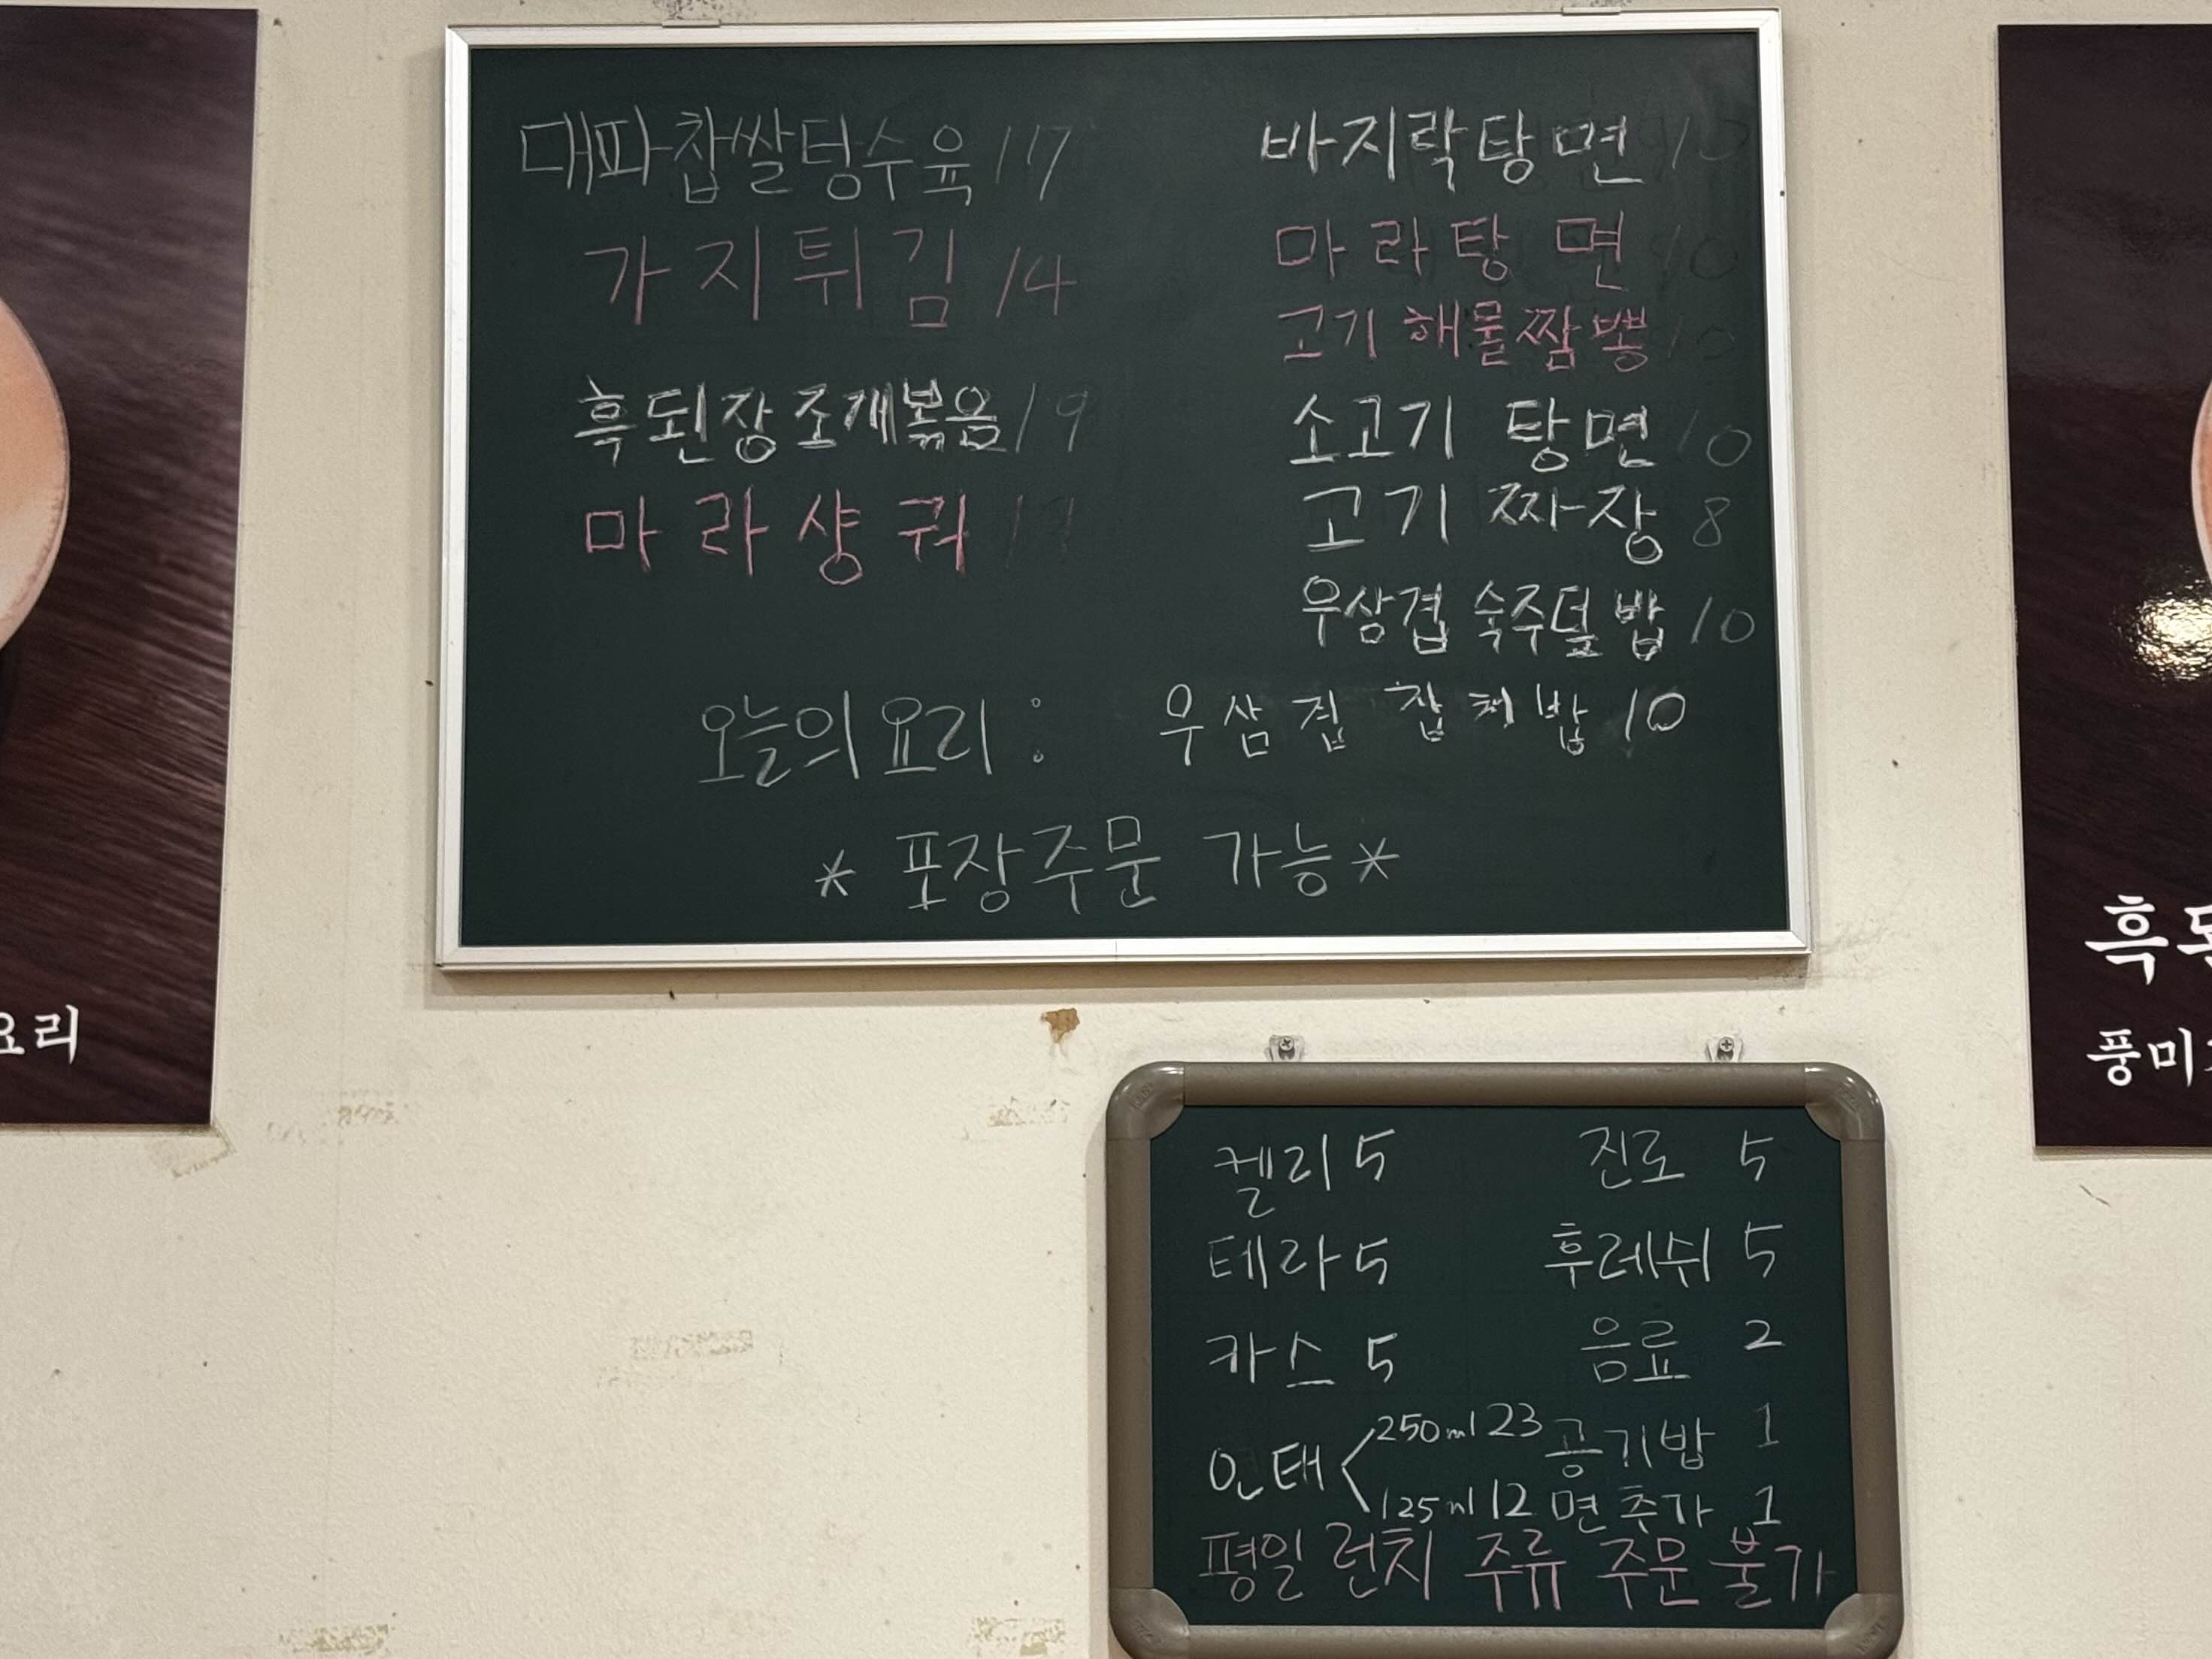 대파찹쌀탕수육 17
가지튀김 14
흑된장조개볶음 19
마라샹궈
바지락탕면
마라탕면 10
고기해물짬뽕 10
소고기 탕면 10
고기 짜장 8
우삼겹 숙주덮밥 10
오늘의 요리 : 우삼겹 잡채밥 10
* 포장주문 가능 *
요리
흑
풍미
켈리 5
테라 5
카스 5
연태 < 250ml 23
125ml 12
진로 5
후레쉬 5
음료 2
공기밥 1
면추가 1
평일 런치 주류 주문 불가